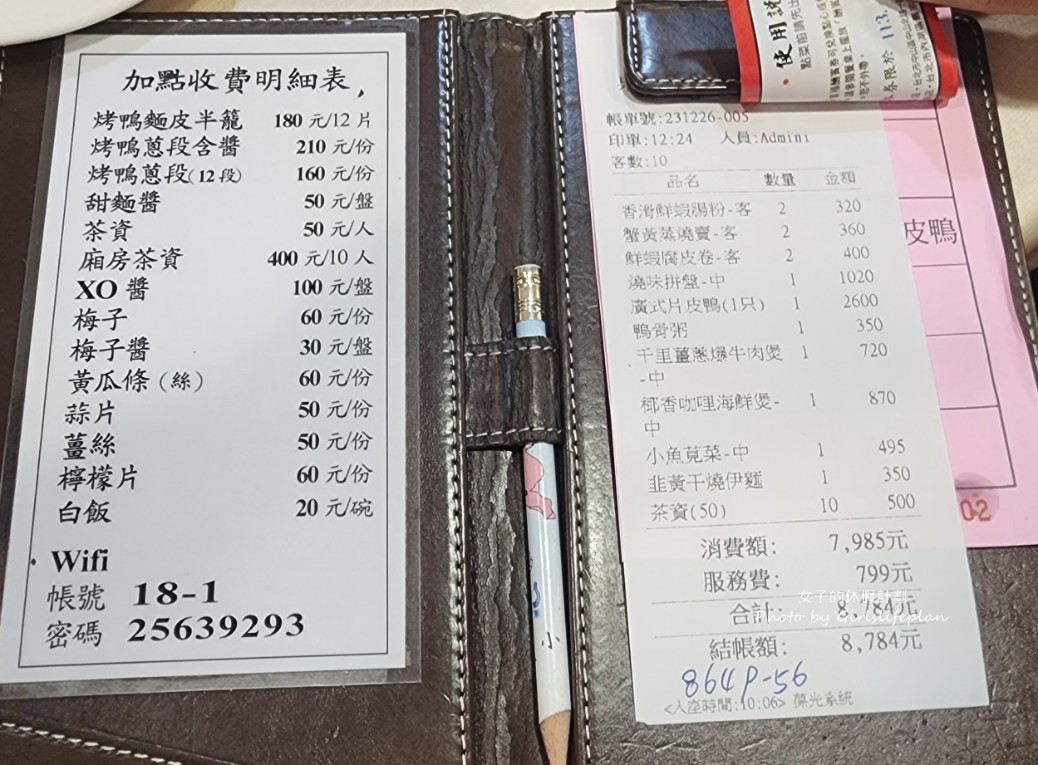 加點收費明細表
烤鴨麵皮半籠 180 元/12 片
烤鴨蔥段含醬 210 元/份
烤鴨蔥段(12 段) 160 元/份
甜麵醬 50 元/盤
茶資 50 元/人
廂房茶資 400 元/10 人
XO 醬 100 元/盤
梅子 60 元/份
梅子醬 30 元/盤
黃瓜條（絲） 60 元/份
蒜片 50 元/份
薑絲 50 元/份
檸檬片 60 元/份
白飯 20 元/碗
Wifi
帳號 18-1
密碼 25639293
・使用說
點菜前請先出
券限於 113.
帳單號:231226-005
印單:12:24 人員:Admini
客數:10
品名 數量 金額
香滑鮮蝦腸粉-客 2 320
蟹黃蒸燒賣-客 2 360
鮮蝦腐皮卷-客 2 400
燒味拼盤-中 1 1020
廣式片皮鴨(1只) 1 2600
鴨骨粥 1 350
千里薑蔥爆牛肉煲 1 720
-中
椰香咖哩海鮮煲- 1 870
中
小魚莧菜-中 1 495
韭黃干燒伊麵 1 350
茶資(50) 10 500
消費額: 7,985元
服務費: 799元
合計: 8,784元
結帳額: 8,784元
8649-56
<入座時間:10:06> 葆光系統
皮鴨
02
小
女子的休假計劃
Photo by Girlslifeplan